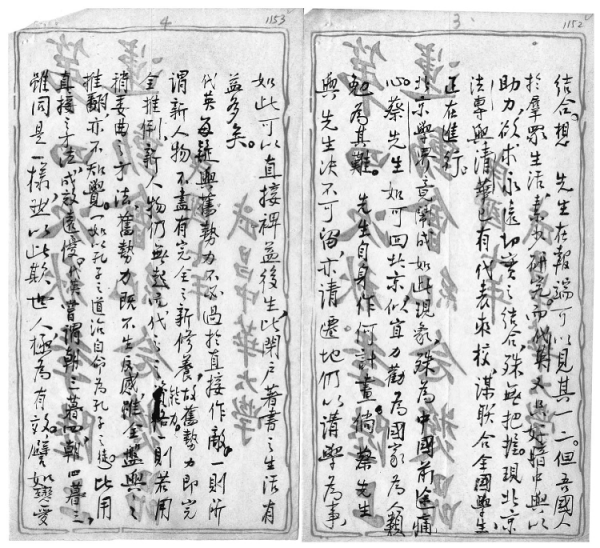 3
1152
結合。想 先生在報端可以見其一二。但吾國人
於羣眾生活,素少研究,而代英又只好暗中與以
助力,欲求永遠切實之結合殊無把握。現北京
法專與清華已有代表來校,謀聯合全國學生,
正在進行。
北京學界竟鬧成如此現象,殊為中國前途痛
心。蔡先生如可回北京,似宜力勸為國家為人類
勉為其難。 先生自身作何計畫?倘蔡先生
與 先生決不可留,亦請遷地仍以講學為事,
4
1153
如此可以直接裨益後生,比閉戶著書之生活有
益多矣。
代英每疑與舊勢力不必過於直接作敵。一則所
謂新人物不盡有完全之新修養,故舊勢力即完
全推倒,新人物仍無起而代之之能力。一則若用
稍委曲之方法,舊勢力既不生反感,雖全盤與之
推翻,亦不知覺。(如以孔子之道治自命為孔子之徒)比用
直接之方法,成效遠優。代英嘗謂朝三暮四,朝四暮三,
雖同是一樣,然以此欺世人極為有效。譬如戀愛
武昌中華大學